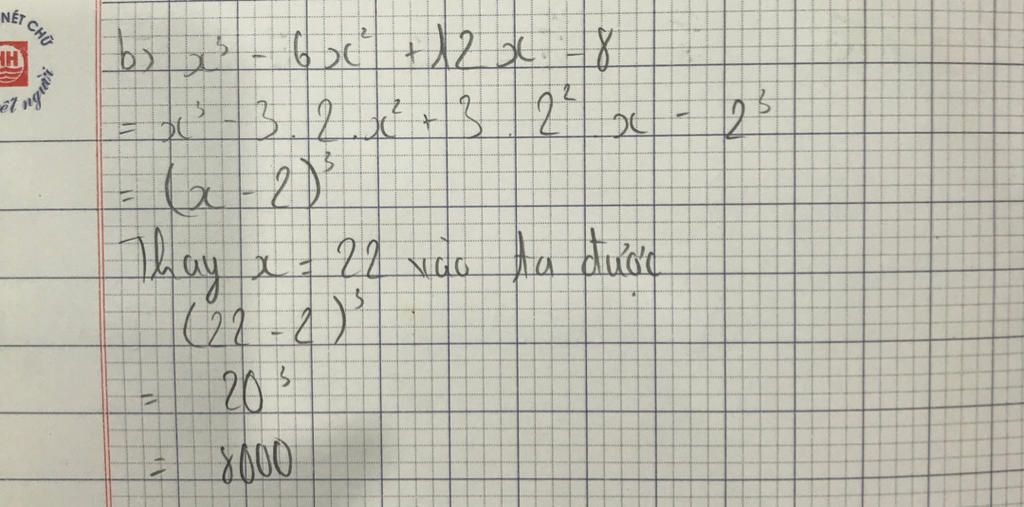 NÉT CHỮ
HH
ết người
b) x³ - 6x² + 12x - 8
= x³ - 3.2.x² + 3.2² x - 2³
= (x - 2)³
Thay x = 22 vào ta được
(22 - 2)³
= 20³
= 8000